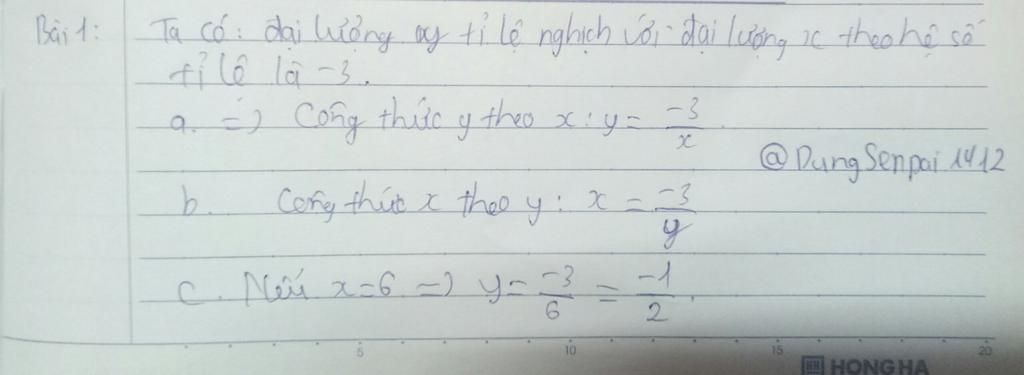 Bài 1: Ta có: đại lượng y tỉ lệ nghịch với đại lượng x theo hệ số
tỉ lệ là -3.
a. => Công thức y theo x: y = -3/x.
@DungSenpai1412
b. Công thức x theo y: x = -3/y
c. Nếu x=6 => y = -3/6 = -1/2.
5 10 15 20
HONG HA